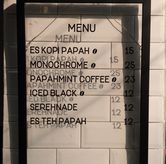 MENU
ES KOPI PAPAH 15
MONOCHROME 25
PAPAHMINT COFFEE 23
ICED BLACK 12
SEREHNADE 12
ES TEH PAPAH